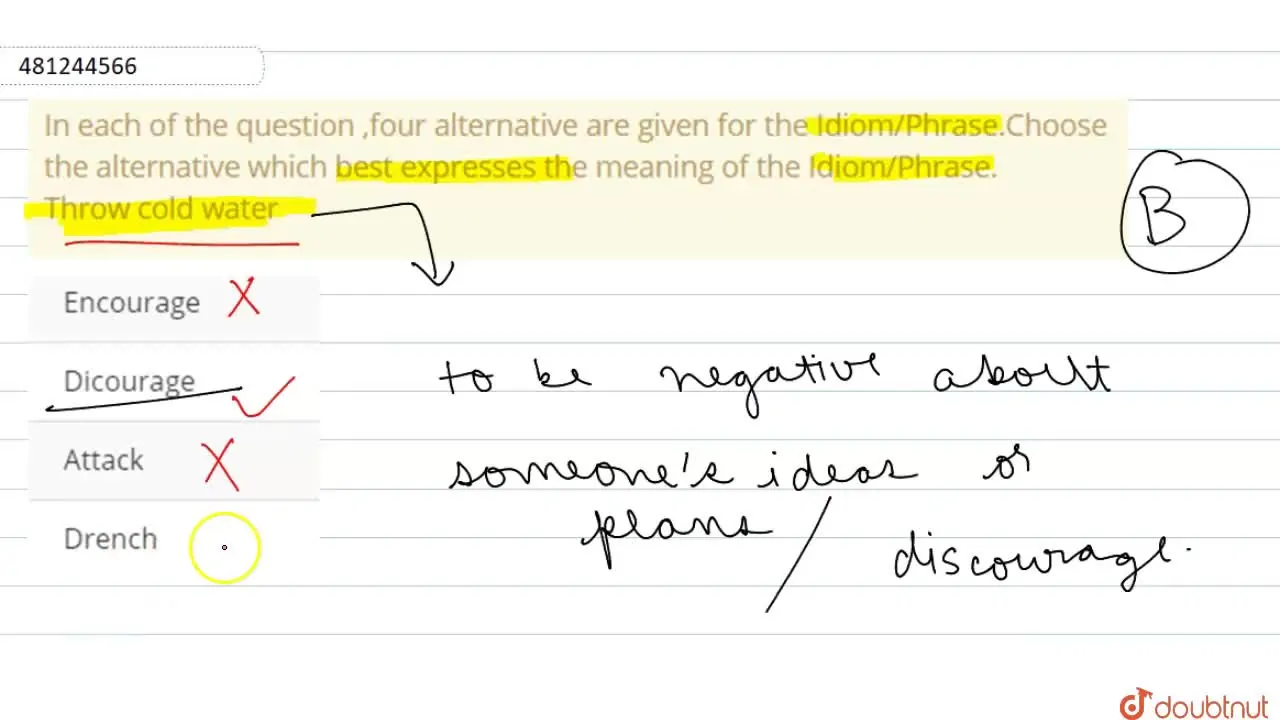 481244566
In each of the question ,four alternative are given for the Idiom/Phrase.Choose
the alternative which best expresses the meaning of the Idiom/Phrase.
Throw cold water
B
Encourage X
Dicourage
Attack X
Drench
to be negative about
someone's ideas or
plans / discourage.
doubtnut